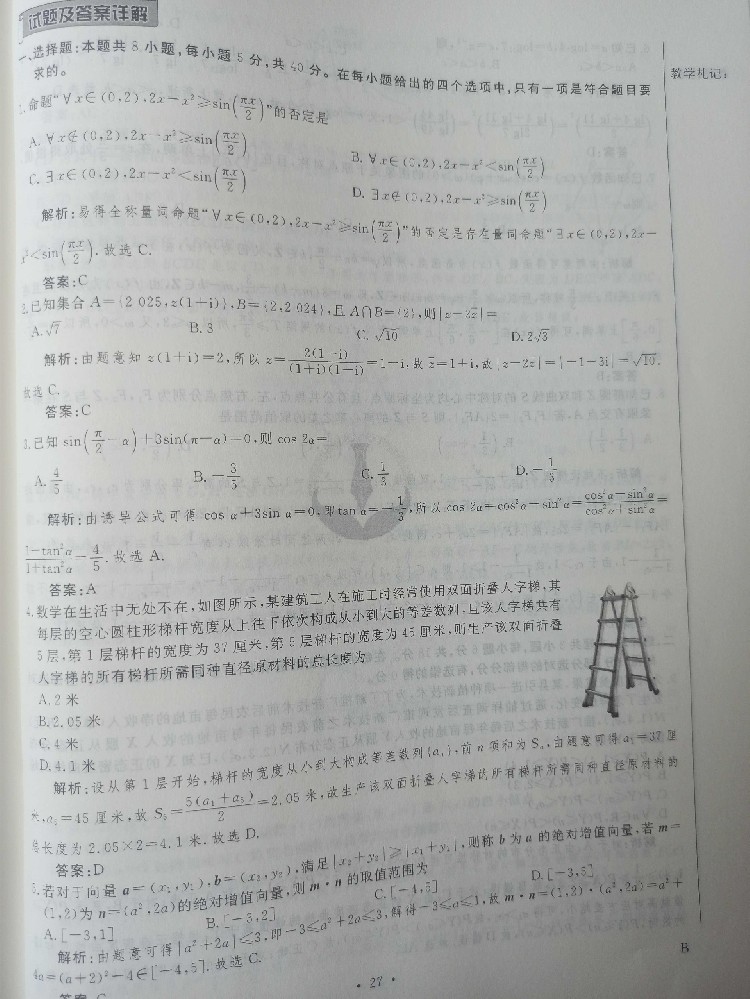 试题及答案详解
教学札记:
一、选择题:本题共8小题,每小题5分,共40分。在每小题给出的四个选项中,只有一项是符合题目要
求的。
1.命题“∀x∈(0,2),2x-x²≥sin(πx/2)”的否定是
A.∀x∉(0,2),2x-x²≥sin(πx/2)
B.∀x∈(0,2),2x-x²<sin(πx/2)
C.∃x∈(0,2),2x-x²<sin(πx/2)
D.∃x∉(0,2),2x-x²≥sin(πx/2)
解析:易得全称量词命题“∀x∈(0,2),2x-x²≥sin(πx/2)”的否定是存在量词命题“∃x∈(0,2),2x-
x²<sin(πx/2).故选C.
答案:C
2.已知集合A={2 025,z(1+i)},B={2,2 024},且A∩B={2},则|z-2z̄|=
A.√7
B.3
C.√10
D.2√3
解析:由题意知z(1+i)=2,所以z=2(1-i)/(1+i)(1-i)=1-i,故z̄=1+i,故|z-2z̄|=|-1-3i|=√10.
故选C.
答案:C
3.已知sin(π/2-α)+3sin(π-α)=0,则cos 2α=
A.4/5
B.-3/5
C.1/3
D.-1/3
解析:由诱导公式可得cos α+3sin α=0,即tan α=-1/3,所以cos 2α=cos²α-sin²α=(cos²α-sin²α)/(cos²α+sin²α)=
(1-tan²α)/(1+tan²α)=4/5.故选A.
答案:A
4.数学在生活中无处不在,如图所示,某建筑工人在施工时经常使用双面折叠人字梯,其
每层的空心圆柱形梯杆宽度从上往下依次构成从小到大的等差数列,且该人字梯共有
5层,第1层梯杆的宽度为37厘米,第5层梯杆的宽度为45厘米,则生产该双面折叠
人字梯的所有梯杆所需同种直径原材料的总长度为
A.2米
B.2.05米
C.4米
D.4.1米
解析:设从第1层开始,梯杆的宽度从小到大构成等差数列{aₙ},前n项和为Sₙ,由题意可得a₁=37厘
米,a₅=45厘米,故S₅=5(a₁+a₅)/2=2.05米,故生产该双面折叠人字梯的所有梯杆所需同种直径原材料的
总长度为2.05×2=4.1米.故选D.
答案:D
5.若对于向量a=(x₁,y₁),b=(x₂,y₂),满足|x₂+y₂|≥|x₁+y₁|,则称b为a的绝对增值向量,若m=
(1,2)为n=(a²,2a)的绝对增值向量,则m·n的取值范围为
A.[-3,1]
B.[-3,2]
C.[-4,5]
D.[-3,5]
解析:由题意可得|a²+2a|≤3,即-3≤a²+2a≤3,解得-3≤a≤1,故m·n=(1,2)·(a²,2a)=a²+
4a=(a+2)²-4∈[-4,5].故选C.
答案:C
·27·
B